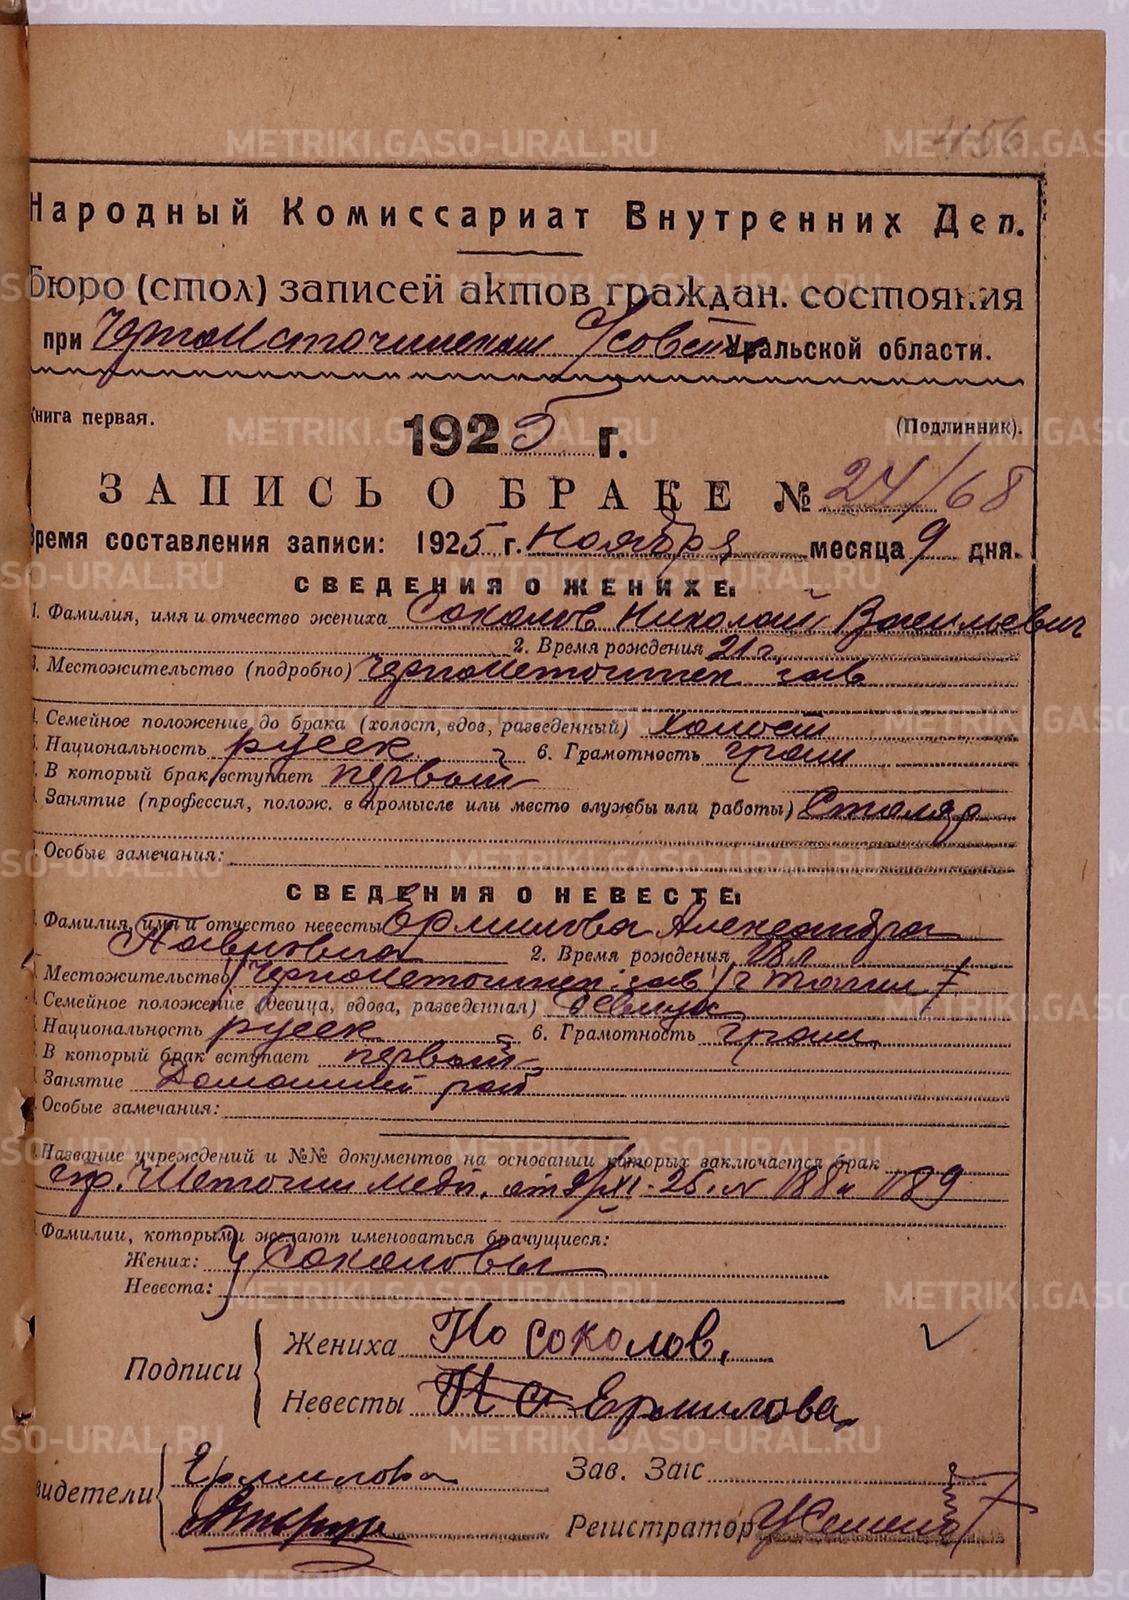 456
Народный Комиссариат Внутренних Дел.
Бюро (стол) записей актов граждан. состояния
при Черноисточинском Уральской области.
Книга первая. (Подлинник).
1925 г.
ЗАПИСЬ О БРАКЕ № 24/68
Время составления записи: 1925 г. Ноября месяца 9 дня.
СВЕДЕНИЯ О ЖЕНИХЕ:
1. Фамилия, имя и отчество жениха Соколов Николай Васильевич
2. Время рождения 21 г.
3. Местожительство (подробно) Черноисточинск зав
4. Семейное положение до брака (холост, вдов, разведенный) холост
5. Национальность русск 6. Грамотность грам
7. В который брак вступает первый
8. Занятие (профессия, полож. в промысле или место службы или работы) Столяр
9. Особые замечания:
СВЕДЕНИЯ О НЕВЕСТЕ:
1. Фамилия, имя и отчество невесты Ермилова Александра
Павловна 2. Время рождения 18 л
3. Местожительство Черноисточинск зав
4. Семейное положение (девица, вдова, разведенная) девица
5. Национальность русск 6. Грамотность грам
7. В который брак вступает первый
8. Занятие Домашней раб
9. Особые замечания:
Название учреждений и №№ документов на основании которых заключается брак
Фамилии, которыми желают именоваться брачущиеся:
Жених: Соколовы
Невеста:
Подписи
Жениха Соколов.
Невесты Ермилова
Свидетели
Ермилова Зав. Загс
Регистратор
METRIKI.GASO-URAL.RU